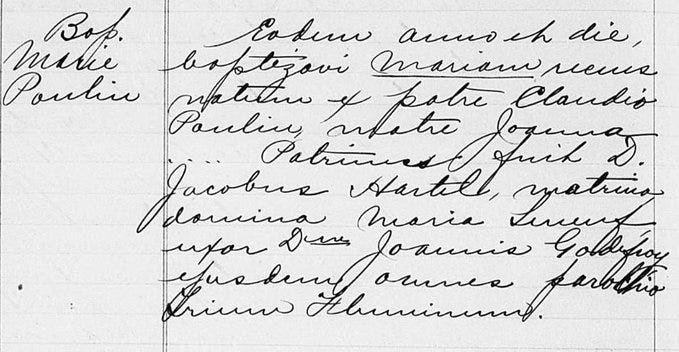 Bap.
Marie
Poulin
Eodem anno et die,
baptizavi Mariam recens
natum ex patre Claudio
Poulin, matre Joanna
..... Patrinus fuit D.
Jacobus Hartel, matrina
domina Maria
uxor Dni Joannis Godefroy
ejusdem omnes parochio
Trium Fluminum.